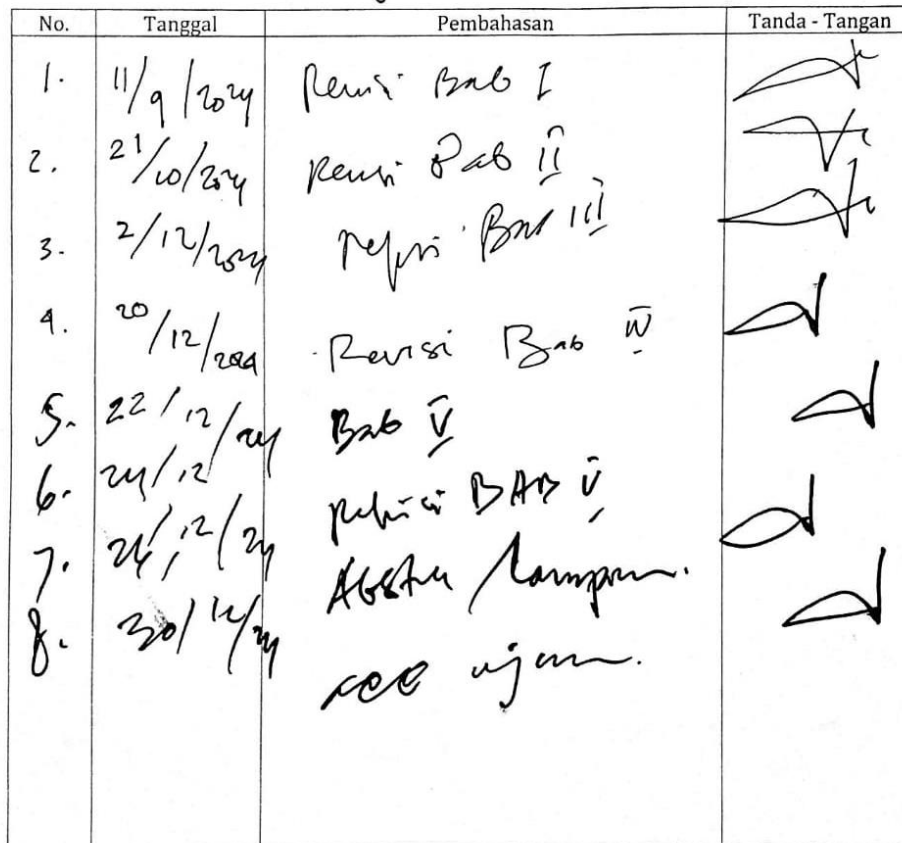 No. Tanggal Pembahasan Tanda - Tangan
1. 11/9/2024 Revisi Bab I
2. 21/10/2024 Revisi Bab II
3. 2/12/2024 Refisi Bab III
4. 20/12/2024 Revisi Bab IV
5. 22/12/24 Bab V
6. 24/12 Refisi BAB V
7. 12/24 Lampiran.
8. 30/12/24 acc ujian.